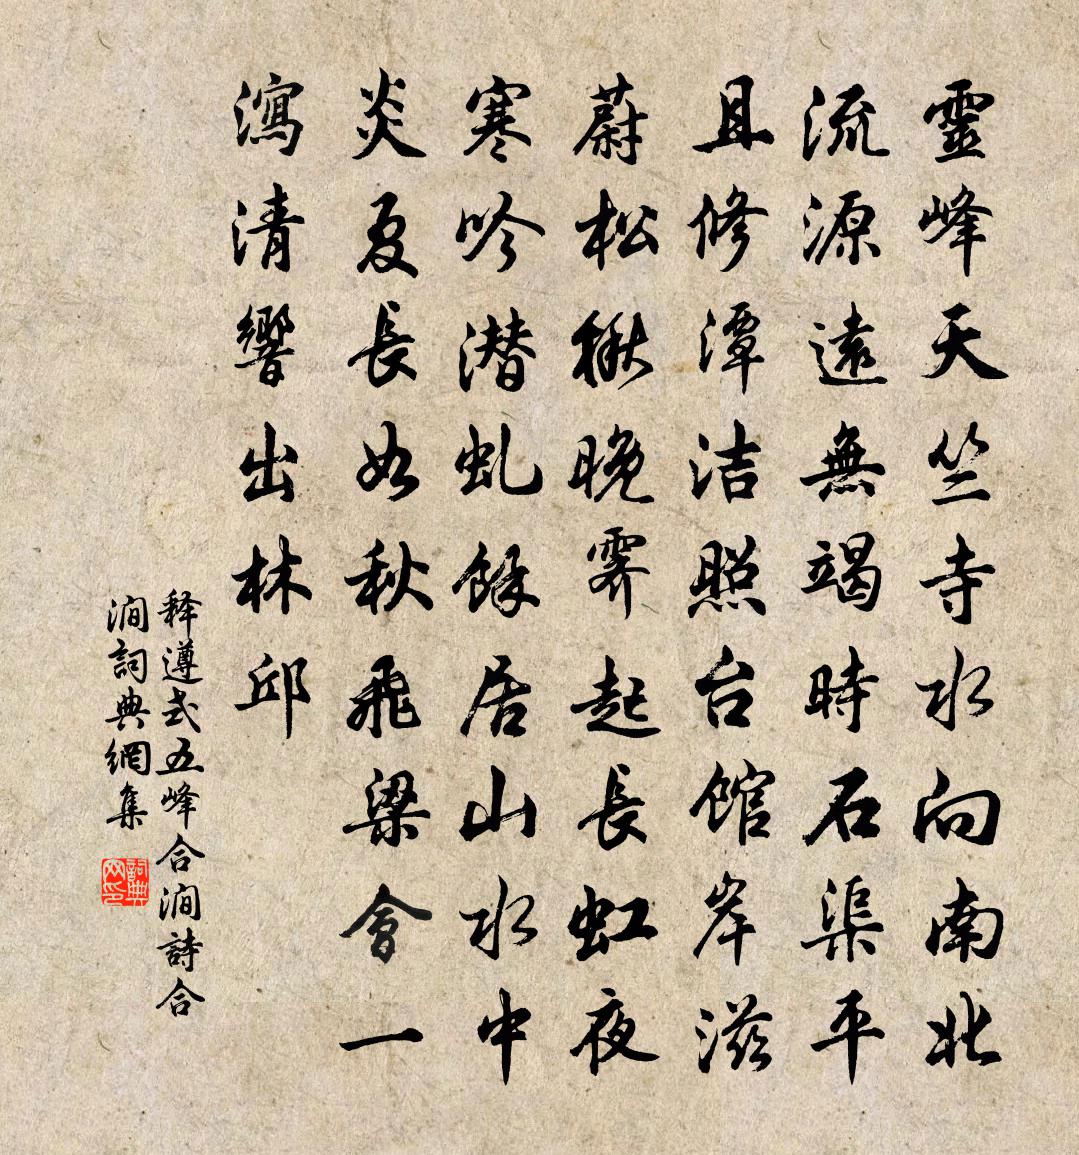 靈峰天竺寺水向南北
流源遠無竭時石渠平
且修潭洁照台館岸滋
蔚松楸晚霽起長虹夜
寒吟潜虬餘居山水中
炎夏長如秋飛梁會一
瀉清響出林邱
释遵式五峰合澗詩合
澗詞典網集
詞典网印